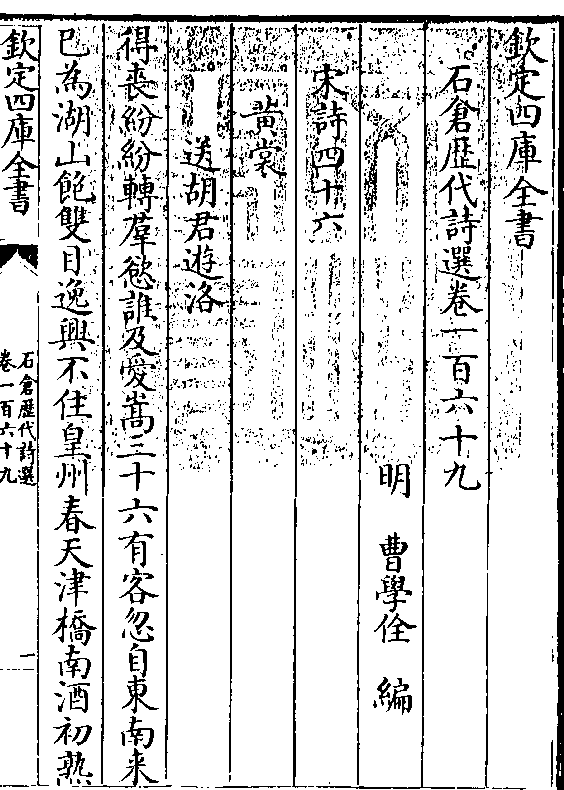 欽定四庫全書
石倉歴代詩選卷一百六十九
明 曹學佺 編
宋詩四十六
黃裳
送胡君遊洛
得喪紛紛轉羣慾誰及愛嵩三十六有客忽自東南来
已為湖山飽雙目逸興不住皇州春天津橋南酒初熟
欽定四庫全書
石倉歴代詩選
卷一百六十九
一